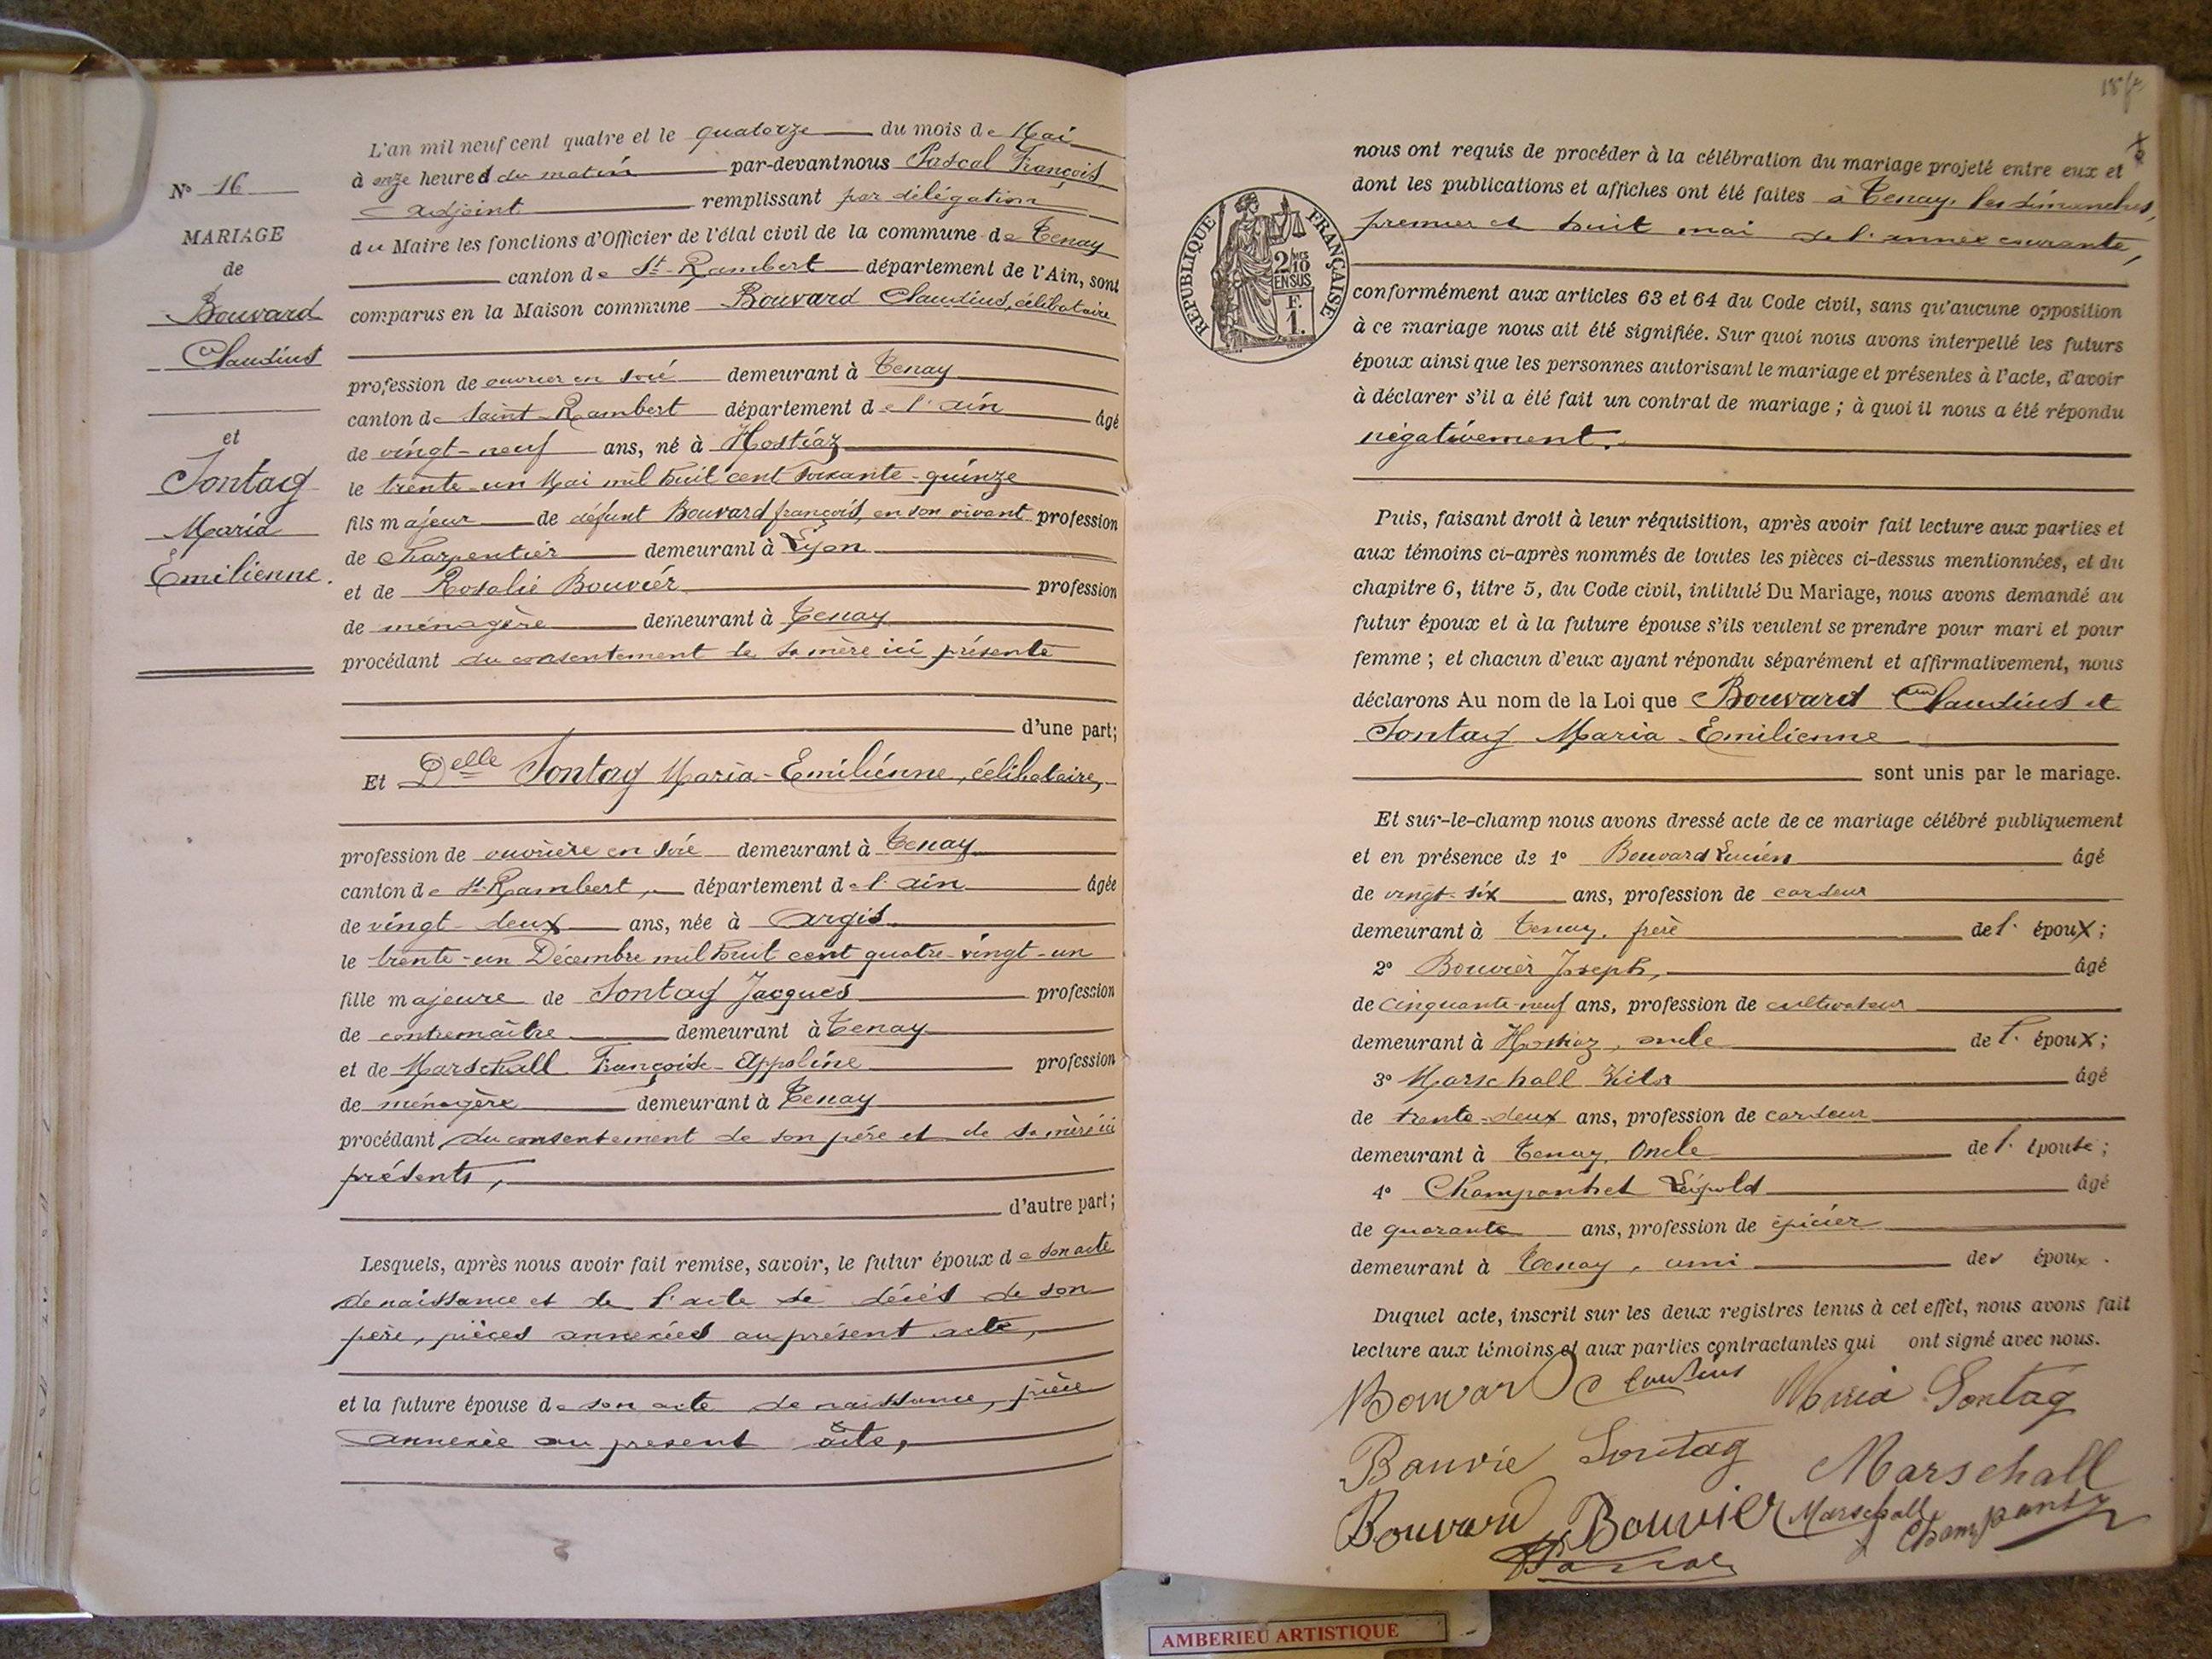 L'an mil neuf cent quatre et le quatorze du mois de Mai
à onze heures du matin par-devant nous Pascal François
adjoint remplissant par délégation
du Maire les fonctions d'Officier de l'état civil de la commune de Tenay
canton de St-Rambert département de l'Ain, sont
comparus en la Maison commune Bouvard Claudius, célibataire
profession de ouvrier en soie demeurant à Tenay
canton de Saint-Rambert département de l'ain âgé
de vingt-neuf ans, né à Hostiaz
le trente-un Mai mil huit cent soixante-quinze
fils majeur de défunt Bouvard françois, en son vivant profession
de Charpentier demeurant à Lyon
et de Rosalie Bouvier profession
de ménagère demeurant à Tenay
procédant du consentement de sa mère ici présente
d'une part;
Et Delle Sontag Maria-Emilienne, célibataire,
profession de ouvrière en soie demeurant à Tenay
canton de St-Rambert, département de l'ain âgée
de vingt-deux ans, née à argis
le trente-un Décembre mil huit cent quatre-vingt-un
fille majeure de Sontag Jacques profession
de contremaître demeurant à Tenay
et de Marschall Françoise-Appoline profession
de ménagère demeurant à Tenay
procédant du consentement de son père et de sa mère ici
présents,
d'autre part;
Lesquels, après nous avoir fait remise, savoir, le futur époux de son acte
de naissance et de l'acte de décès de son
père, pièces annexées au présent acte,
et la future épouse de son acte de naissance, pièce
annexée au présent acte,
N° 16
MARIAGE
de
Bouvard
Claudius
et
Sontag
Maria
Emilienne.
nous ont requis de procéder à la célébration du mariage projeté entre eux et
dont les publications et affiches ont été faites à Tenay, les dimanches,
premier et huit mai de l'année courante,
conformément aux articles 63 et 64 du Code civil, sans qu'aucune opposition
à ce mariage nous ait été signifiée. Sur quoi nous avons interpellé les futurs
époux ainsi que les personnes autorisant le mariage et présentes à l'acte, d'avoir
à déclarer s'il a été fait un contrat de mariage ; à quoi il nous a été répondu
négativement.
Puis, faisant droit à leur réquisition, après avoir fait lecture aux parties et
aux témoins ci-après nommés de toutes les pièces ci-dessus mentionnées, et du
chapitre 6, titre 5, du Code civil, intitulé Du Mariage, nous avons demandé au
futur époux et à la future épouse s'ils veulent se prendre pour mari et pour
femme ; et chacun d'eux ayant répondu séparément et affirmativement, nous
déclarons Au nom de la Loi que Bouvard Claudius et
Sontag Maria-Emilienne
sont unis par le mariage.
Et sur-le-champ nous avons dressé acte de ce mariage célébré publiquement
et en présence de 1° Bouvard Lucien âgé
de vingt-six ans, profession de cardeur
demeurant à Tenay, frère de l' époux;
2° Bouvier Joseph, âgé
de cinquante-neuf ans, profession de cultivateur
demeurant à Hostiaz, oncle de l' époux;
3° Marschall âgé
de trente-deux ans, profession de cardeur
demeurant à Tenay, Oncle de l' épouse;
4° Champanhet Léopold âgé
de quarante ans, profession de épicier
demeurant à Tenay, ami des époux.
Duquel acte, inscrit sur les deux registres tenus à cet effet, nous avons fait
lecture aux témoins et aux parties contractantes qui ont signé avec nous.
Bouvard Claudius Maria Sontag
Bouvie Sontag Marschall
Bouvard Bouvier Marschall
Pascal
RÉPUBLIQUE FRANÇAISE
2/10
EN SUS
F.
1.
AMBERIEU ARTISTIQUE